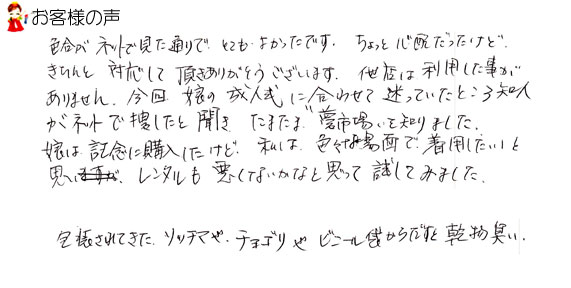 お客様の声
色合が ネットで見た通りで、とても よかったです。 ちょっと心配だったけど、
きちんと 対応して 頂きありがとうございます。 他店は利用した事が
ありません。今回 娘の成人式に合わせて 迷っていたところ知人
がネットで捜したと聞き たまたま 夢市場いて知りました。
娘は 記念に購入したけど、 私は、色々な場面で、着用したい！と
思い、レンタルも悪くないかなと思って 試してみました。
包装されてきた、ソッチマや、チョゴリや ビニール袋からだすと 乾物臭い、